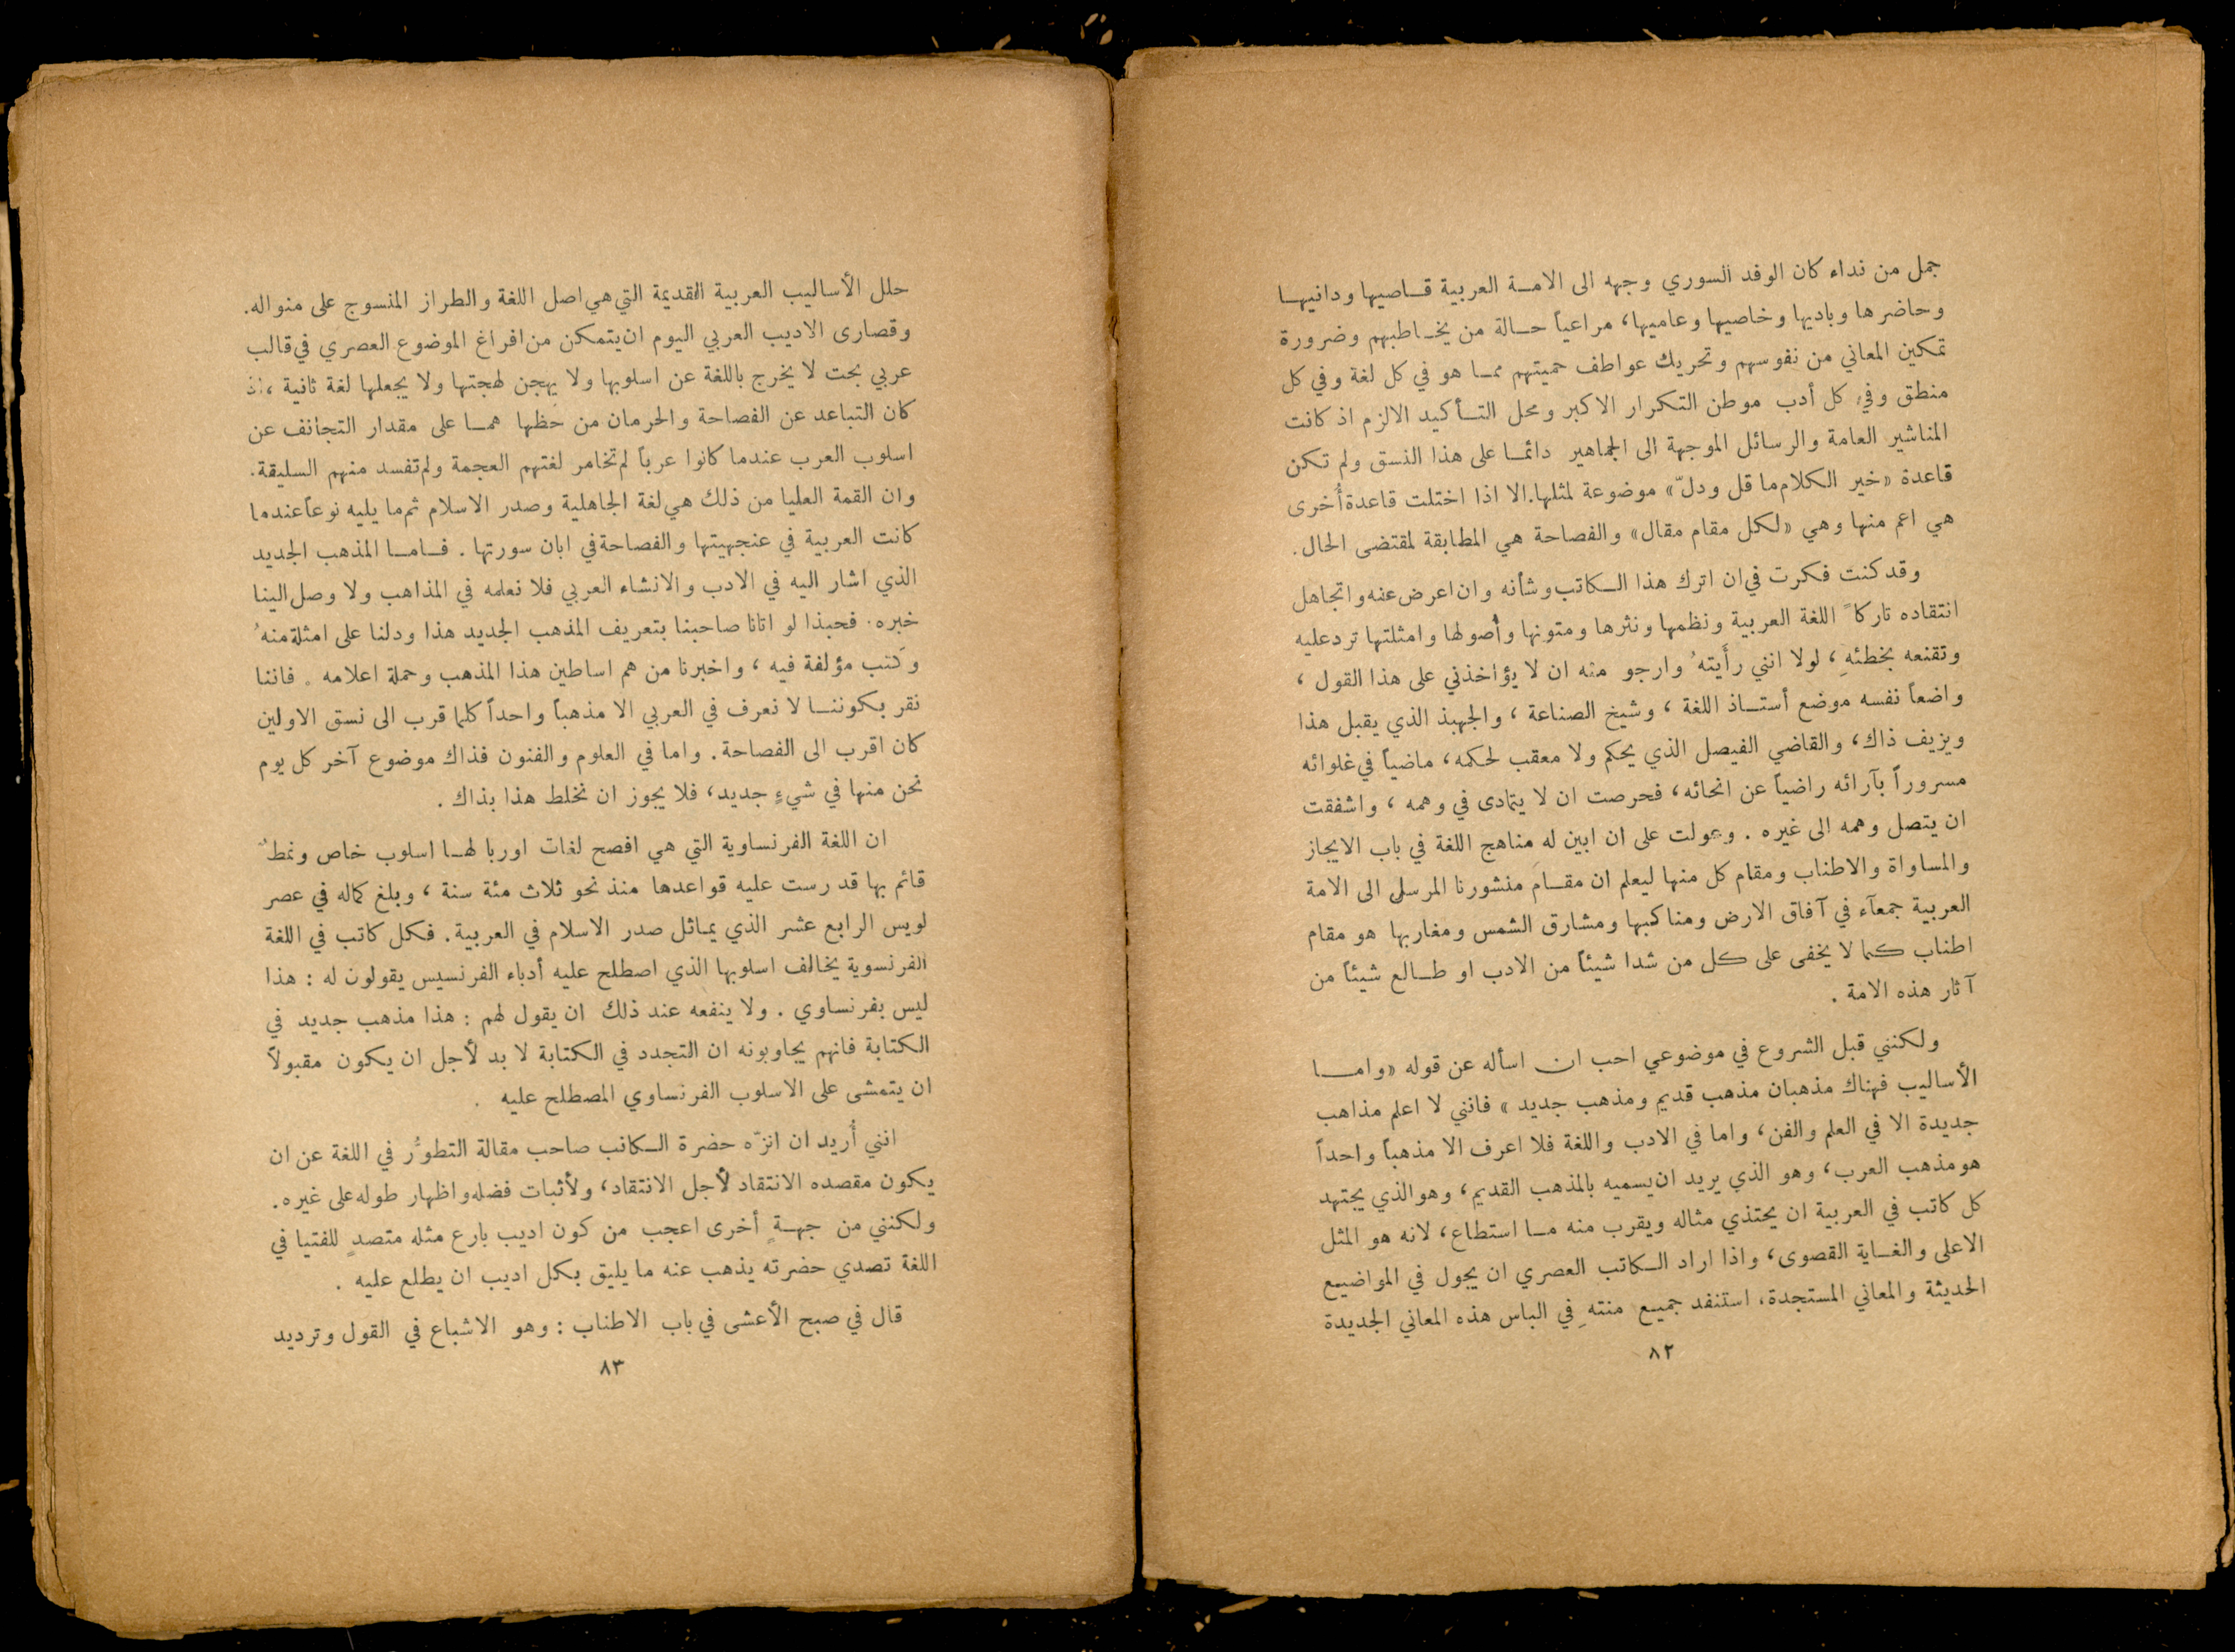 جمل من نداء كان الوفد السوري وجهه الى الامة العربية قاصيها ودانيها
وحاضرها وباديها وخاصيها وعاميها، مراعياً حالة من يخاطبهم وضرورة
تمكين المعاني من نفوسهم وتحريك عواطف حميتهم مما هو في كل لغة وفي كل
منطق وفي كل أدب موطن التكرار الاكبر ومحل التأكيد الالزم اذ كانت
المناشير العامة والرسائل الموجهة الى الجماهير دائما على هذا النسق ولم تكن
قاعدة «خير الكلام ما قل ودلّ» موضوعة لمثلها. الا اذا اختلت قاعدة أُخرى
هي اعم منها وهي «لكل مقام مقال» والفصاحة هي المطابقة لمقتضى الحال.
وقد كنت فكرت في ان اترك هذا الكاتب وشأنه وان اعرض عنه واتجاهل
انتقاده تاركاً اللغة العربية ونظمها ونثرها ومتونها وأُصولها وامثلتها ترد عليه
وتقنعه بخطئهِ، لولا انني رأيتهُ وارجو منه ان لا يؤاخذني على هذا القول،
واضعاً نفسه موضع أستاذ اللغة، وشيخ الصناعة، والجهبذ الذي يقبل هذا
ويزيف ذاك، والقاضي الفيصل الذي يحكم ولا معقب لحكمه، ماضياً في غلوائه
مسروراً بآرائه راضياً عن انحائه، فحرصت ان لا يتمادى في وهمه، واشفقت
ان يتصل وهمه الى غيره. وعولت على ان ابين له مناهج اللغة في باب الايجاز
والمساواة والاطناب ومقام كل منها ليعلم ان مقام منشورنا المرسل الى الامة
العربية جمعآء في آفاق الارض ومناكبها ومشارق الشمس ومغاربها هو مقام
اطناب كما لا يخفى على كل من شدا شيئاً من الادب او طالع شيئاً من
آثار هذه الامة.
ولكنني قبل الشروع في موضوعي احب ان اسأله عن قوله «واما
الأساليب فهناك مذهبان مذهب قديم ومذهب جديد» فانني لا اعلم مذاهب
جديدة الا في العلم والفن، واما في الادب واللغة فلا اعرف الا مذهباً واحداً
هو مذهب العرب، وهو الذي يريد ان يسميه بالمذهب القديم، وهو الذي يجتهد
كل كاتب في العربية ان يحتذي مثاله ويقرب منه ما استطاع، لانه هو المثل
الاعلى والغاية القصوى، واذا اراد الكاتب العصري ان يجول في المواضيع
الحديثة والمعاني المستجدة، استنفد جميع منتهِ في الباس هذه المعاني الجديدة
٨٢
حلل الأساليب العربية القديمة التي هي اصل اللغة والطراز المنسوج على منواله.
وقصارى الاديب العربي اليوم ان يتمكن من افراغ الموضوع العصري في قالب
عربي بحت لا يخرج باللغة عن اسلوبها ولا يهجن لهجتها ولا يجعلها لغة ثانية، اذ
كان التباعد عن الفصاحة والحرمان من حظها هما على مقدار التجانف عن
اسلوب العرب عندما كانوا عرباً لم تخامر لغتهم العجمة ولم تفسد منهم السليقة.
وان القمة العليا من ذلك هي لغة الجاهلية وصدر الاسلام ثم ما يليه نوعاً عندما
كانت العربية في عنجهيتها والفصاحة في ابان سورتها. فاما المذهب الجديد
الذي اشار اليه في الادب والانشاء العربي فلا نعلمه في المذاهب ولا وصل الينا
خبره. فحبذا لو اتانا صاحبنا بتعريف المذهب الجديد هذا ودلنا على امثلة منهُ
وكتب مؤلفة فيه، واخبرنا من هم اساطين هذا المذهب وحملة اعلامه. فاننا
نقر بكوننا لا نعرف في العربي الا مذهباً واحداً كلما قرب الى نسق الاولين
كان اقرب الى الفصاحة. واما في العلوم والفنون فذاك موضوع آخر كل يوم
نحن منها في شيءٍ جديد، فلا يجوز ان نخلط هذا بذاك.
ان اللغة الفرنساوية التي هي افصح لغات اوربا لها اسلوب خاص ونمطٌ
قائم بها قد رست عليه قواعدها منذ نحو ثلاث مئة سنة، وبلغ كماله في عصر
لويس الرابع عشر الذي يماثل صدر الاسلام في العربية. فكل كاتب في اللغة
الفرنسوية يخالف اسلوبها الذي اصطلح عليه أدباء الفرنسيس يقولون له: هذا
ليس بفرنساوي. ولا ينفعه عند ذلك ان يقول لهم: هذا مذهب جديد في
الكتابة فانهم يجاوبونه ان التجدد في الكتابة لا بد لأجل ان يكون مقبولاً
ان يتمشى على الاسلوب الفرنساوي المصطلح عليه.
انني أُريد ان انزّه حضرة الكاتب صاحب مقالة التطوُّر في اللغة عن ان
يكون مقصده الانتقاد لأجل الانتقاد، ولأثبات فضله واظهار طوله على غيره.
ولكنني من جهةٍ أخرى اعجب من كون اديب بارع مثله متصدٍ للفتيا في
اللغة تصدي حضرته يذهب عنه ما يليق بكل اديب ان يطلع عليه.
قال في صبح الأعشى في باب الاطناب: وهو الاشباع في القول وترديد
٨٣